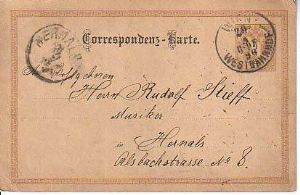 Correspondenz-Karte.
HERNALS
WIEN
WESTBAHNHOF
Herrn Rudolf Stieff
Musiker
in
Hernals
Alsbachstrasse No 8.